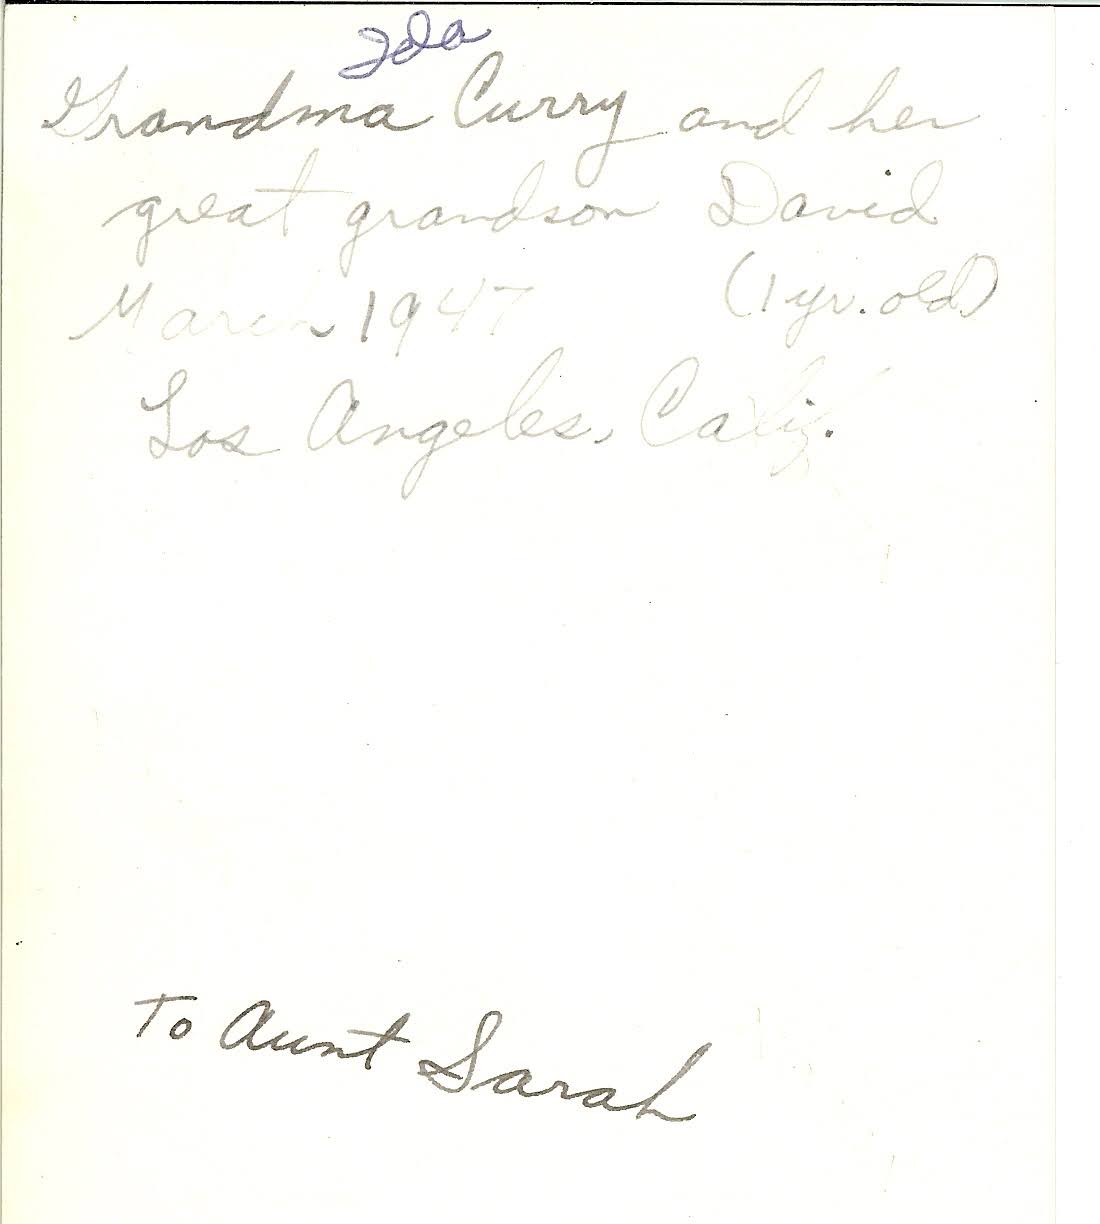 Ida
Grandma Curry and her
great grandson David
March 1947 (1 yr. old)
Los Angeles, Calif.
To Aunt Sarah